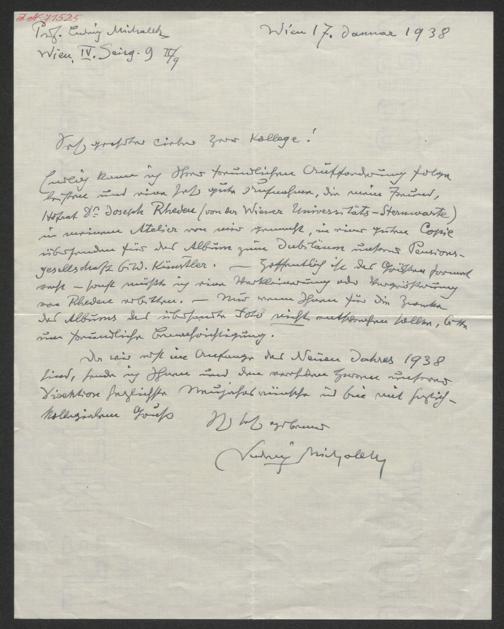 I.N. 71525
Prof. Ludwig Michalek
Wien, IV. Seisg. 9 II/9
Wien 17. Januar 1938
Sehr geehrter lieber Herr Kollege!
Endlich kann ich Ihrer freundlichen Aufforderung Folge
leisten und eine sehr gute Aufnahme, die mein Freund,
Hofrat Dr. Joseph Rheden (von der Wiener Universitäts-Sternwarte)
in meinem Atelier von mir gemacht, in einer guten Copie
übersenden für das Album zum Jubiläum unserer Pensions-
gesellschaft bild. Künstler. — Hoffentlich ist das Größen format
recht – sonst müßte ich eine Verkleinerung oder Vergrößerung
von Rheden erbitten. — Nur wenn Ihnen für die Zwecke
des Albums das übersandte Foto nicht entsprechen sollte, bitte
um freundliche Benachrichtigung.
Da wir erst im Anfange des Neuen Jahres 1938
sind, sende ich Ihnen und den verehrten Herren unserer
Direktion herzlichste Neujahrswünsche u bin mit herzlich-
kollegialem Gruß
Ihr sehr ergebener
Ludwig Michalek